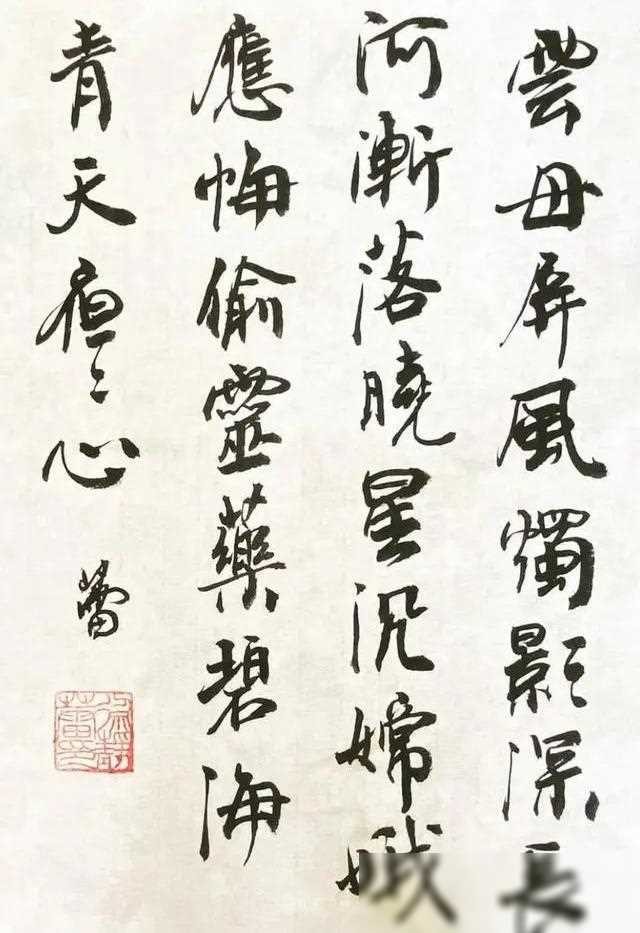 雲母屏風燭影深長
河漸落曉星沉嫦娥
應悔偷靈藥碧海
青天夜夜心
蕾